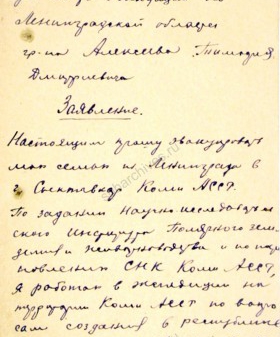 Ленинградской области
гр-на Алексеева Тимофея
Дмитриевича
Заявление.
Настоящим прошу эвакуировать
мою семью из Ленинграда в
г. Сыктывкар Коми АССР.
По заданию Научно-исследователь
ского Института Полярного земле
делия и животноводства и по
становлению СНК Коми АССР,
я работаю в экспедиции на
территории Коми АССР по вопро
сам создания в республике